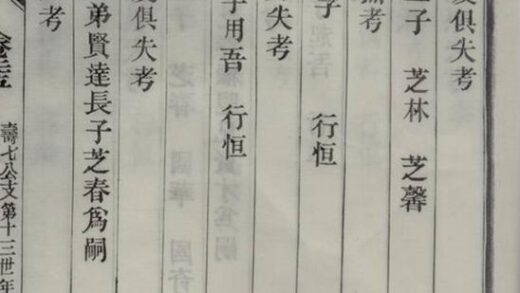 俱失考
子 芝林 芝馨
考
子 行恒
失考
子用吾 行恒
俱失考
弟賢達長子芝春爲嗣
考
壽七公支第十三世年